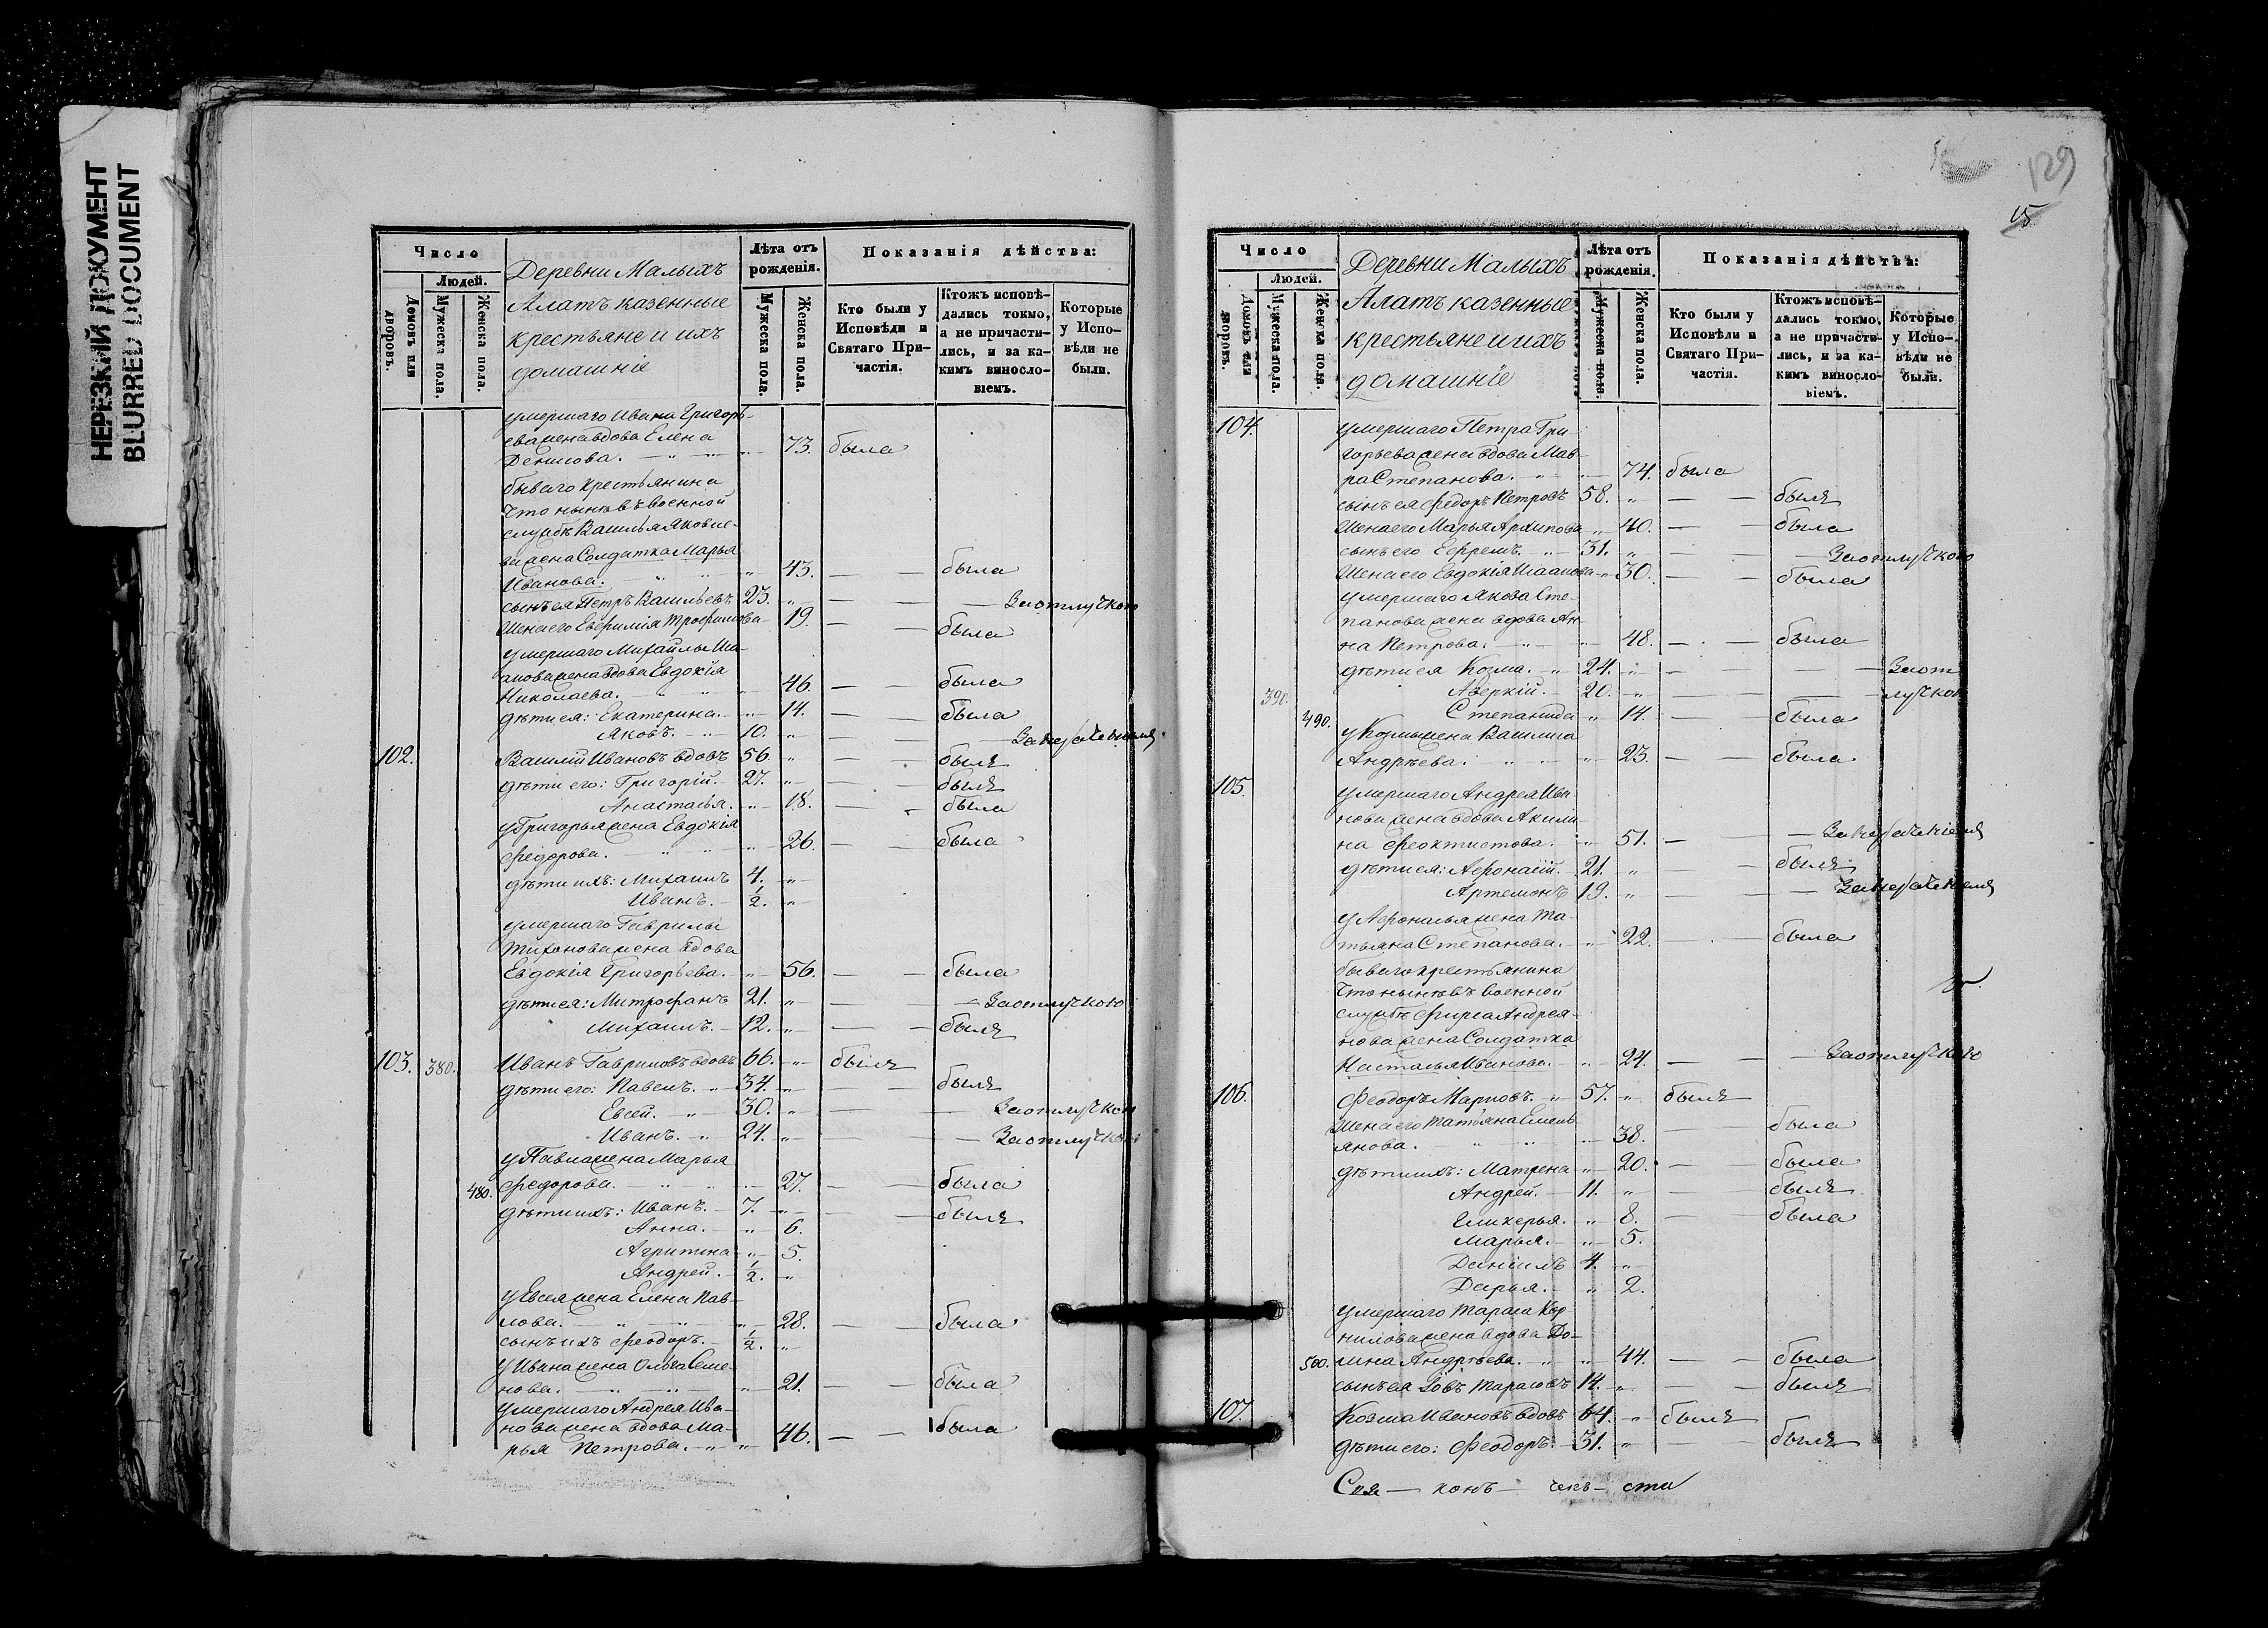 НЕРЕЗКИЙ ДОКУМЕНТ
BLURRED DOCUMENT
Число
Людей.
Домовъ или дворовъ.
Мужеска пола.
Женска пола.
Деревни Малыхъ
Алатъ казенные
крестьяне и ихъ
домашніе
Лѣта отъ рожденія.
Мужеска пола.
Женска пола.
Показанія дѣйства:
Кто были у Исповѣди и Святаго При-
частія.
Ктожъ исповѣ-
дались токмо,
а не причасти-
лись, и за ка-
кимъ винсло-
віемъ.
Которые
у Испо-
вѣди не
были.
умершаго Ивана Григорь-
ева жена вдова Елена
Денисова. 73. была
бываго крестьянина
что нынѣ въ военной
службѣ Василья Яковле-
ва жена Солдатка Марья
Иванова. 43. — — была
сынъ ея Петръ Васильевъ 23. — — — За отлучкою
жена его Евфимія Трофимова 19. — — была
умершаго Михайлы
жена вдова Евдокія
Николаева. 46. — — была
дѣти ея: Екатерина. 14. — — была
Яковъ. 10. — —
102. Василій Ивановъ вдовъ 56. — — былъ
дѣти его: Григорій. 27. — — былъ
Анастасья. 18. — — была
у Григорья жена Евдокія
Федорова. 26. — — была
дѣти ихъ: Михаилъ 4.
Иванъ. 1/2.
умершаго Гаврилы
Тихонова жена вдова
Евдокія Григорьева. 56. — — была
дѣти ея: Митрофанъ 21. — — — За отлучкою
Михаилъ. 12. — — былъ
103. 380. Иванъ Гавриловъ вдовъ 66. былъ
дѣти его: Павелъ. 34. — — былъ
Евсей. 30. — — За отлучкою
Иванъ. 24. — — За отлучкою
у Павла жена Марья
480. Федорова. 27. — — была
дѣти ихъ: Иванъ. 7. — — былъ
Анна. 6.
Агрипина 5.
Андрей. 1/2.
у Евсея жена Елена Пав-
лова. 28. — — была
сынъ ихъ Феодоръ. 1/2.
у Ивана жена Ольга Семе-
нова. 21. — — была
умершаго Андрея Ива-
нова жена вдова Ма-
рья Петрова. 46. — — была
129
Число
Людей.
Домовъ или дворовъ.
Мужеска пола.
Женска пола.
Деревни Малыхъ
Алатъ казенные
крестьяне и ихъ
домашніе
Лѣта отъ рожденія.
Мужеска пола.
Женска пола.
Показанія дѣйства:
Кто были у Исповѣди и Святаго При-
частія.
Ктожъ исповѣ-
дались токмо,
а не причасти-
лись, и за ка-
кимъ винсло-
віемъ.
Которые
у Испо-
вѣди не
были.
104. умершаго Петра Гри-
горьева жена вдова Мав-
ра Степанова. 74. была
сынъ ея Федоръ Петровъ 58. — — былъ
жена его Марья Архипова 40. — — была
сынъ его Ефремъ. 31. — — — За отлучкою
жена его Евдокія 30. — — была
умершаго Якова Сте-
панова жена вдова Ан-
на Петрова. 48. — — была
дѣти ея Козма. 24. — — — За от
390. Аверкій. 20. — — — лучкою
490. Степанида 14. — — была
у Козмы жена Василиса
Андрѣева. 23. — — была
105. умершаго Андрея Ива-
нова жена вдова Акили-
на Феоктистова. 51. — —
дѣти ея: Афонасій. 21. — былъ
Артемонъ 19. — —
у Афонасья жена Та-
тьяна Степанова. 22. — — была
бываго крестьянина
что нынѣ въ военной
службѣ Фирса Андрея-
нова жена Солдатка
Настасья Иванова. 24. — — За отлучкою
106. Феодоръ Марковъ. 57. былъ
жена его Татьяна Емель-
янова. 38. — была
дѣти ихъ: Матрена 20. — была
Андрей. 11. былъ
Гликерья. 8. была
Марья. 5.
Даніилъ 4.
Дарья. 2.
умершаго Тараса Кор-
нилова жена вдова До-
500. мна Андрѣева. 44. — — была
сынъ ея Іовъ Тарасовъ 14. — — былъ
107. Козма Ивановъ вдовъ 64. былъ
дѣти его: Феодоръ. 31. — — былъ